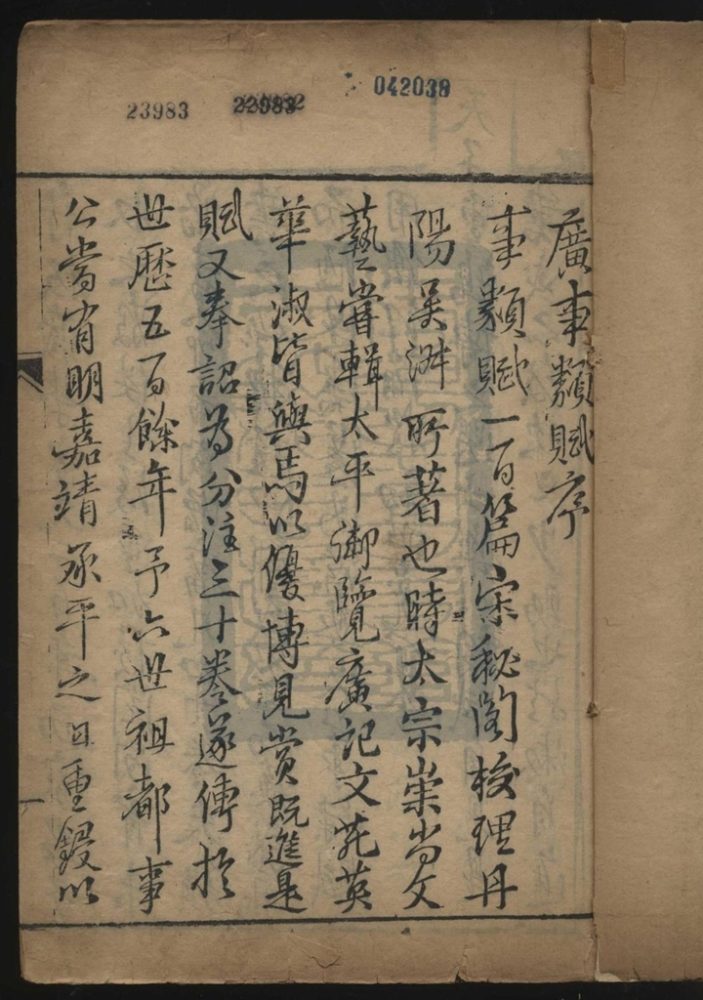 042038
22982
23983
廣事類賦序
事類賦一百篇宋秘閣校理丹
陽吴淑所著也時太宗崇尚文
藝嘗輯太平御覽廣記文苑英
華淑皆與焉以優博見賞既進是
賦又奉詔為分注三十卷遂傳於
世歷五百餘年予六世祖都事
公當有明嘉靖承平之日重鋟以